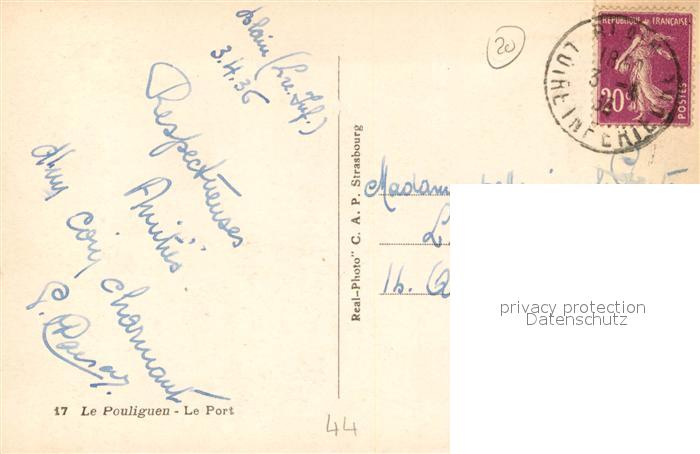 Blain (Lre. Inf.)
3.4.36
Respectueuses
Amitiés
d'un coin charmant
17 Le Pouliguen - Le Port
44
Real-Photo" C. A. P. Strasbourg
20
RÉPUBLIQUE FRANÇAISE
20c
POSTES
BLAIN
18
3 -4
LOIRE INFERIEURE
Madame
L
16.
privacy protection
Datenschutz